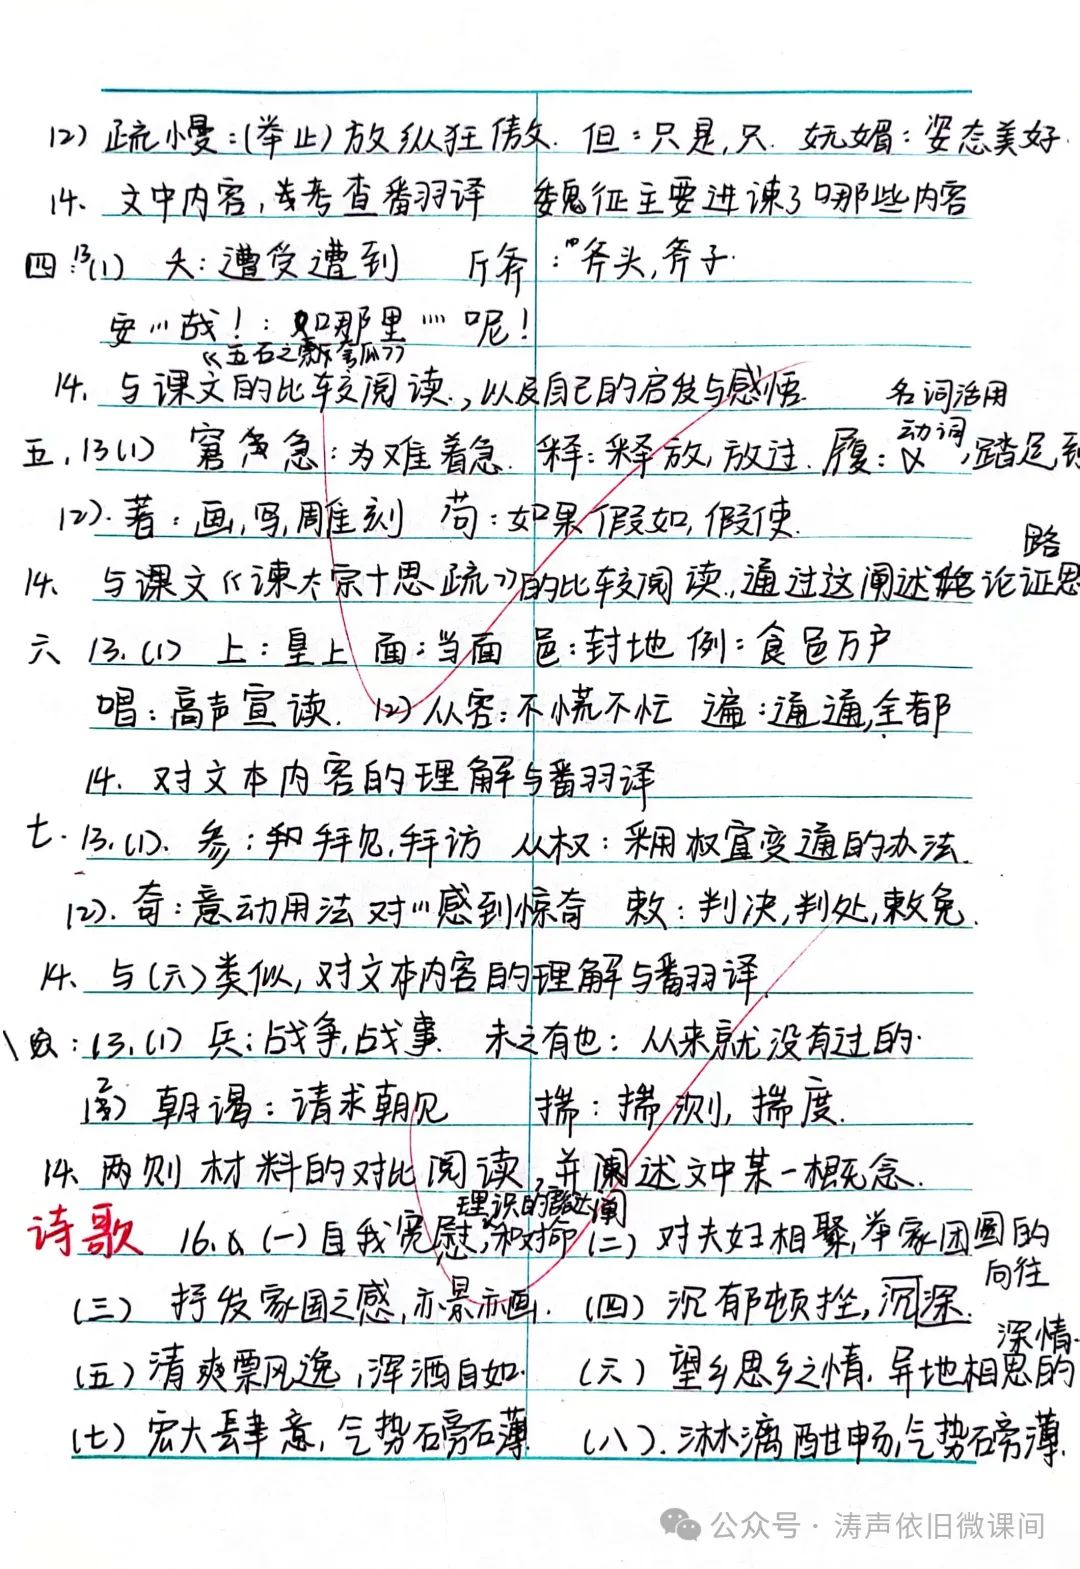 (2) 疏慢:(举止)放纵狂傲. 但:只是,只. 妩媚:姿态美好.
14、文中内容,考查翻译 魏征主要进谏了哪些内容
四:13(1) 夭:遭受遭到 斤斧:斧头,斧子.
安…哉!:如哪里……呢!
《五石之瓠》
14、与课文的比较阅读,以及自己的启发与感悟.
名词活用
五,13(1) 窘急:为难着急. 释:释放,放过. 履:动词,踏足到
(2).著:画,写,雕刻 苟:如果假如,假使.
路
14、与课文《谏太宗十思疏》的比较阅读,通过这阐述论证思
六 13.(1) 上:皇上 面:当面 邑:封地 例:食邑万户
唱:高声宣读. (2)从容:不慌不忙 遍:通通,全都
14.对文本内容的理解与翻译
七.13.(1). 参:拜见,拜访 从权:采用权宜变通的办法.
(2).奇:意动用法 对…感到惊奇 赦:判决,判处,赦免.
14.与(六)类似,对文本内容的理解与翻译.
八:13.(1) 兵:战争,战事. 未之有也:从来就没有过的.
(2) 朝谒:请求朝见 揣:揣测,揣度.
14.两则材料的对比阅读,并阐述文中某一概念.
诗歌 16. (一)自我宽慰,和对命 (二)对夫妇相聚,举家团圆的
向往
(三) 抒发家国之感,亦景亦画. (四)沉郁顿挫,沉深.
深情.
(五)清爽飘逸,浑洒自如. (六)望乡思乡之情.异地相思的
(七)宏大肆意,气势磅礴. (八).淋漓酣畅,气势磅薄.
公众号·涛声依旧微课间